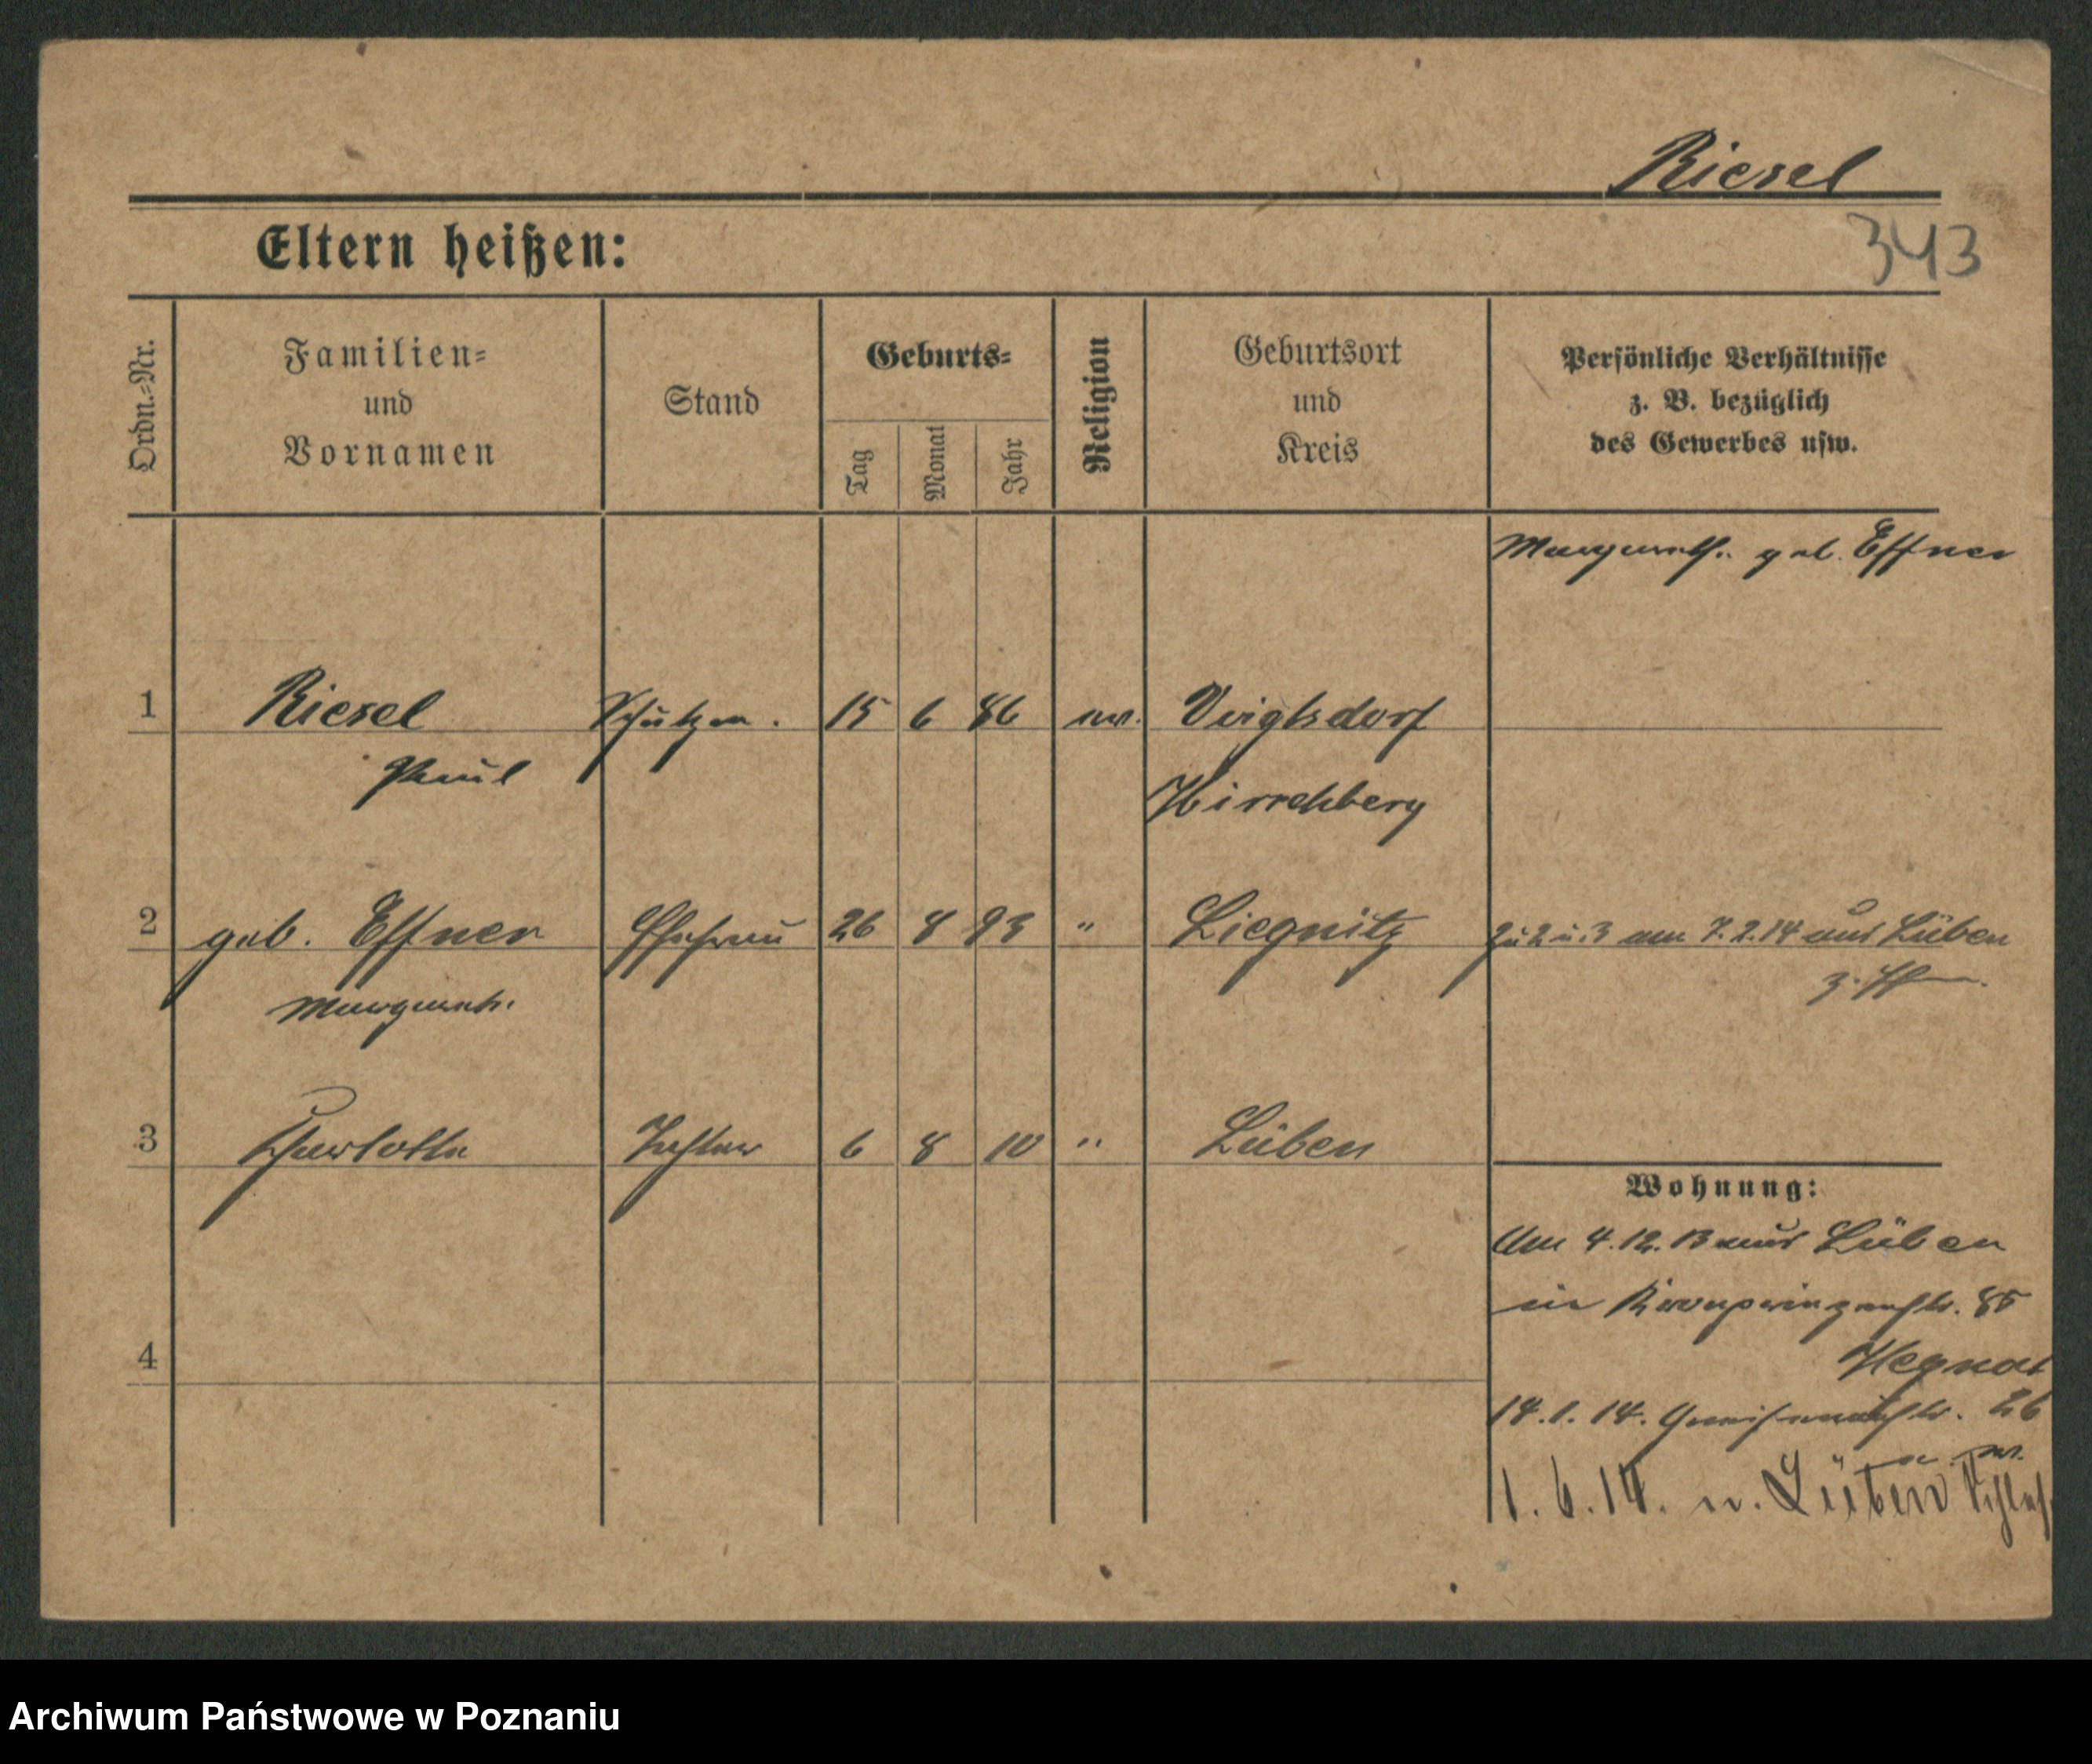 Riesel
343
Eltern heißen:
Ordn.-Nr.
Familien-
und
Vornamen
Stand
Geburts-
Tag
Monat
Jahr
Religion
Geburtsort
und
Kreis
Persönliche Verhältnisse
z. B. bezüglich
des Gewerbes usw.
geb. Effner
1 Riesel 15 6 86 ev. Voigtsdorf
Paul Hirschberg
2 geb. Effner Ehefrau 26 8 93 " Liegnitz Zu 2 u. 3 am 7.2.14 aus Lüben
Margareth.
3 Charlotte Tochter 6 8 10 " Lüben
Wohnung:
Am 4.12.13 aus Lüben
in Kronprinzenstr. 85
4
14.1.14. Gneisenaustr. 26
1.6.14. n. Lüben Schles.
Archiwum Państwowe w Poznaniu